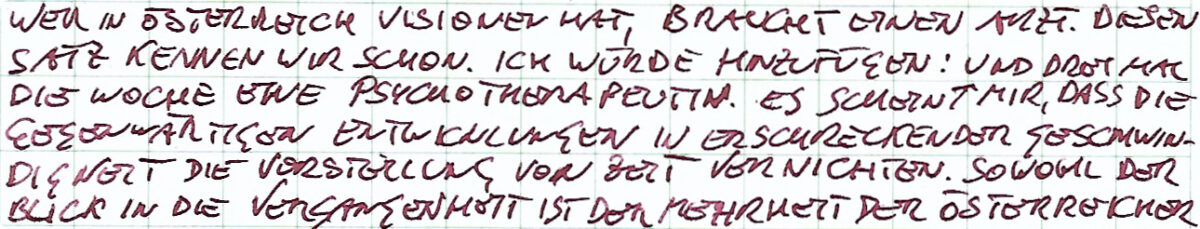 WER IN ÖSTERREICH VISIONEN HAT, BRAUCHT EINEN ARZT. DIESEN
SATZ KENNEN WIR SCHON. ICH WÜRDE HINZUFÜGEN: UND DREI MAL
DIE WOCHE EINE PSYCHOTHERAPEUTIN. ES SCHEINT MIR, DASS DIE
GEGENWÄRTIGEN ENTWICKLUNGEN IN ERSCHRECKENDER GESCHWIN-
DIGKEIT DIE VORSTELLUNG VON ZEIT VERNICHTEN. SOWOHL DER
BLICK IN DIE VERGANGENHEIT IST DER MEHRHEIT DER ÖSTERREICHER